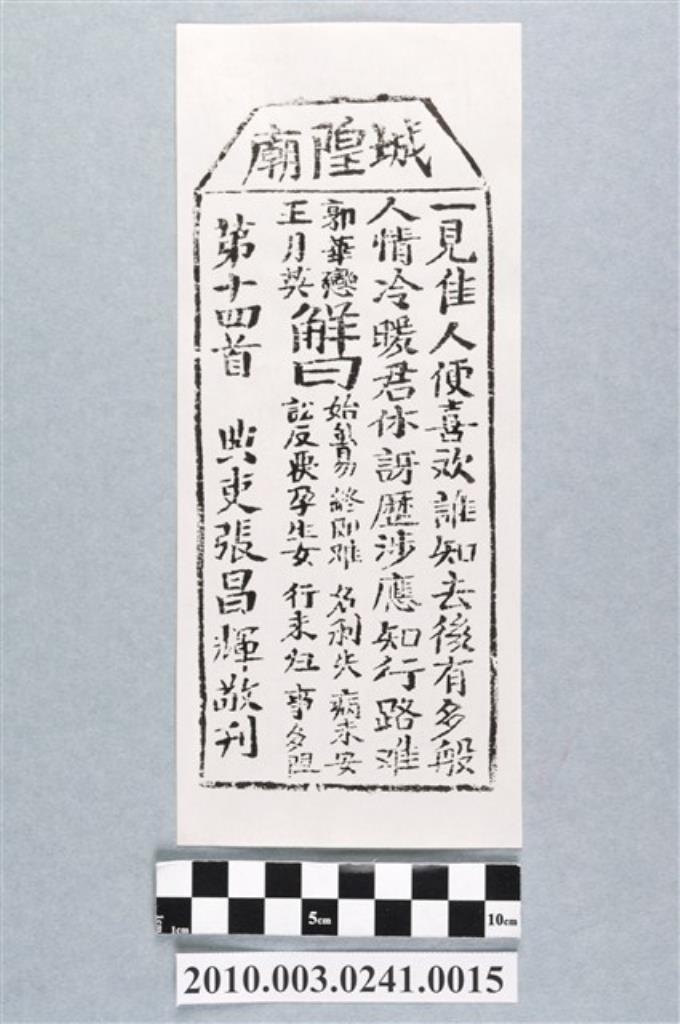 城隍廟
一見佳人便喜欢誰知去後有多般
人情冷暖君休訝歷涉應知行路难
郭華戀
王月英
解曰
始雖易終即难 名利失 病未安
訟反復孕生女 行未归 事多阻
第十四首 典吏張昌輝敬刊
5cm
1cm
10cm
2010.003.0241.0015